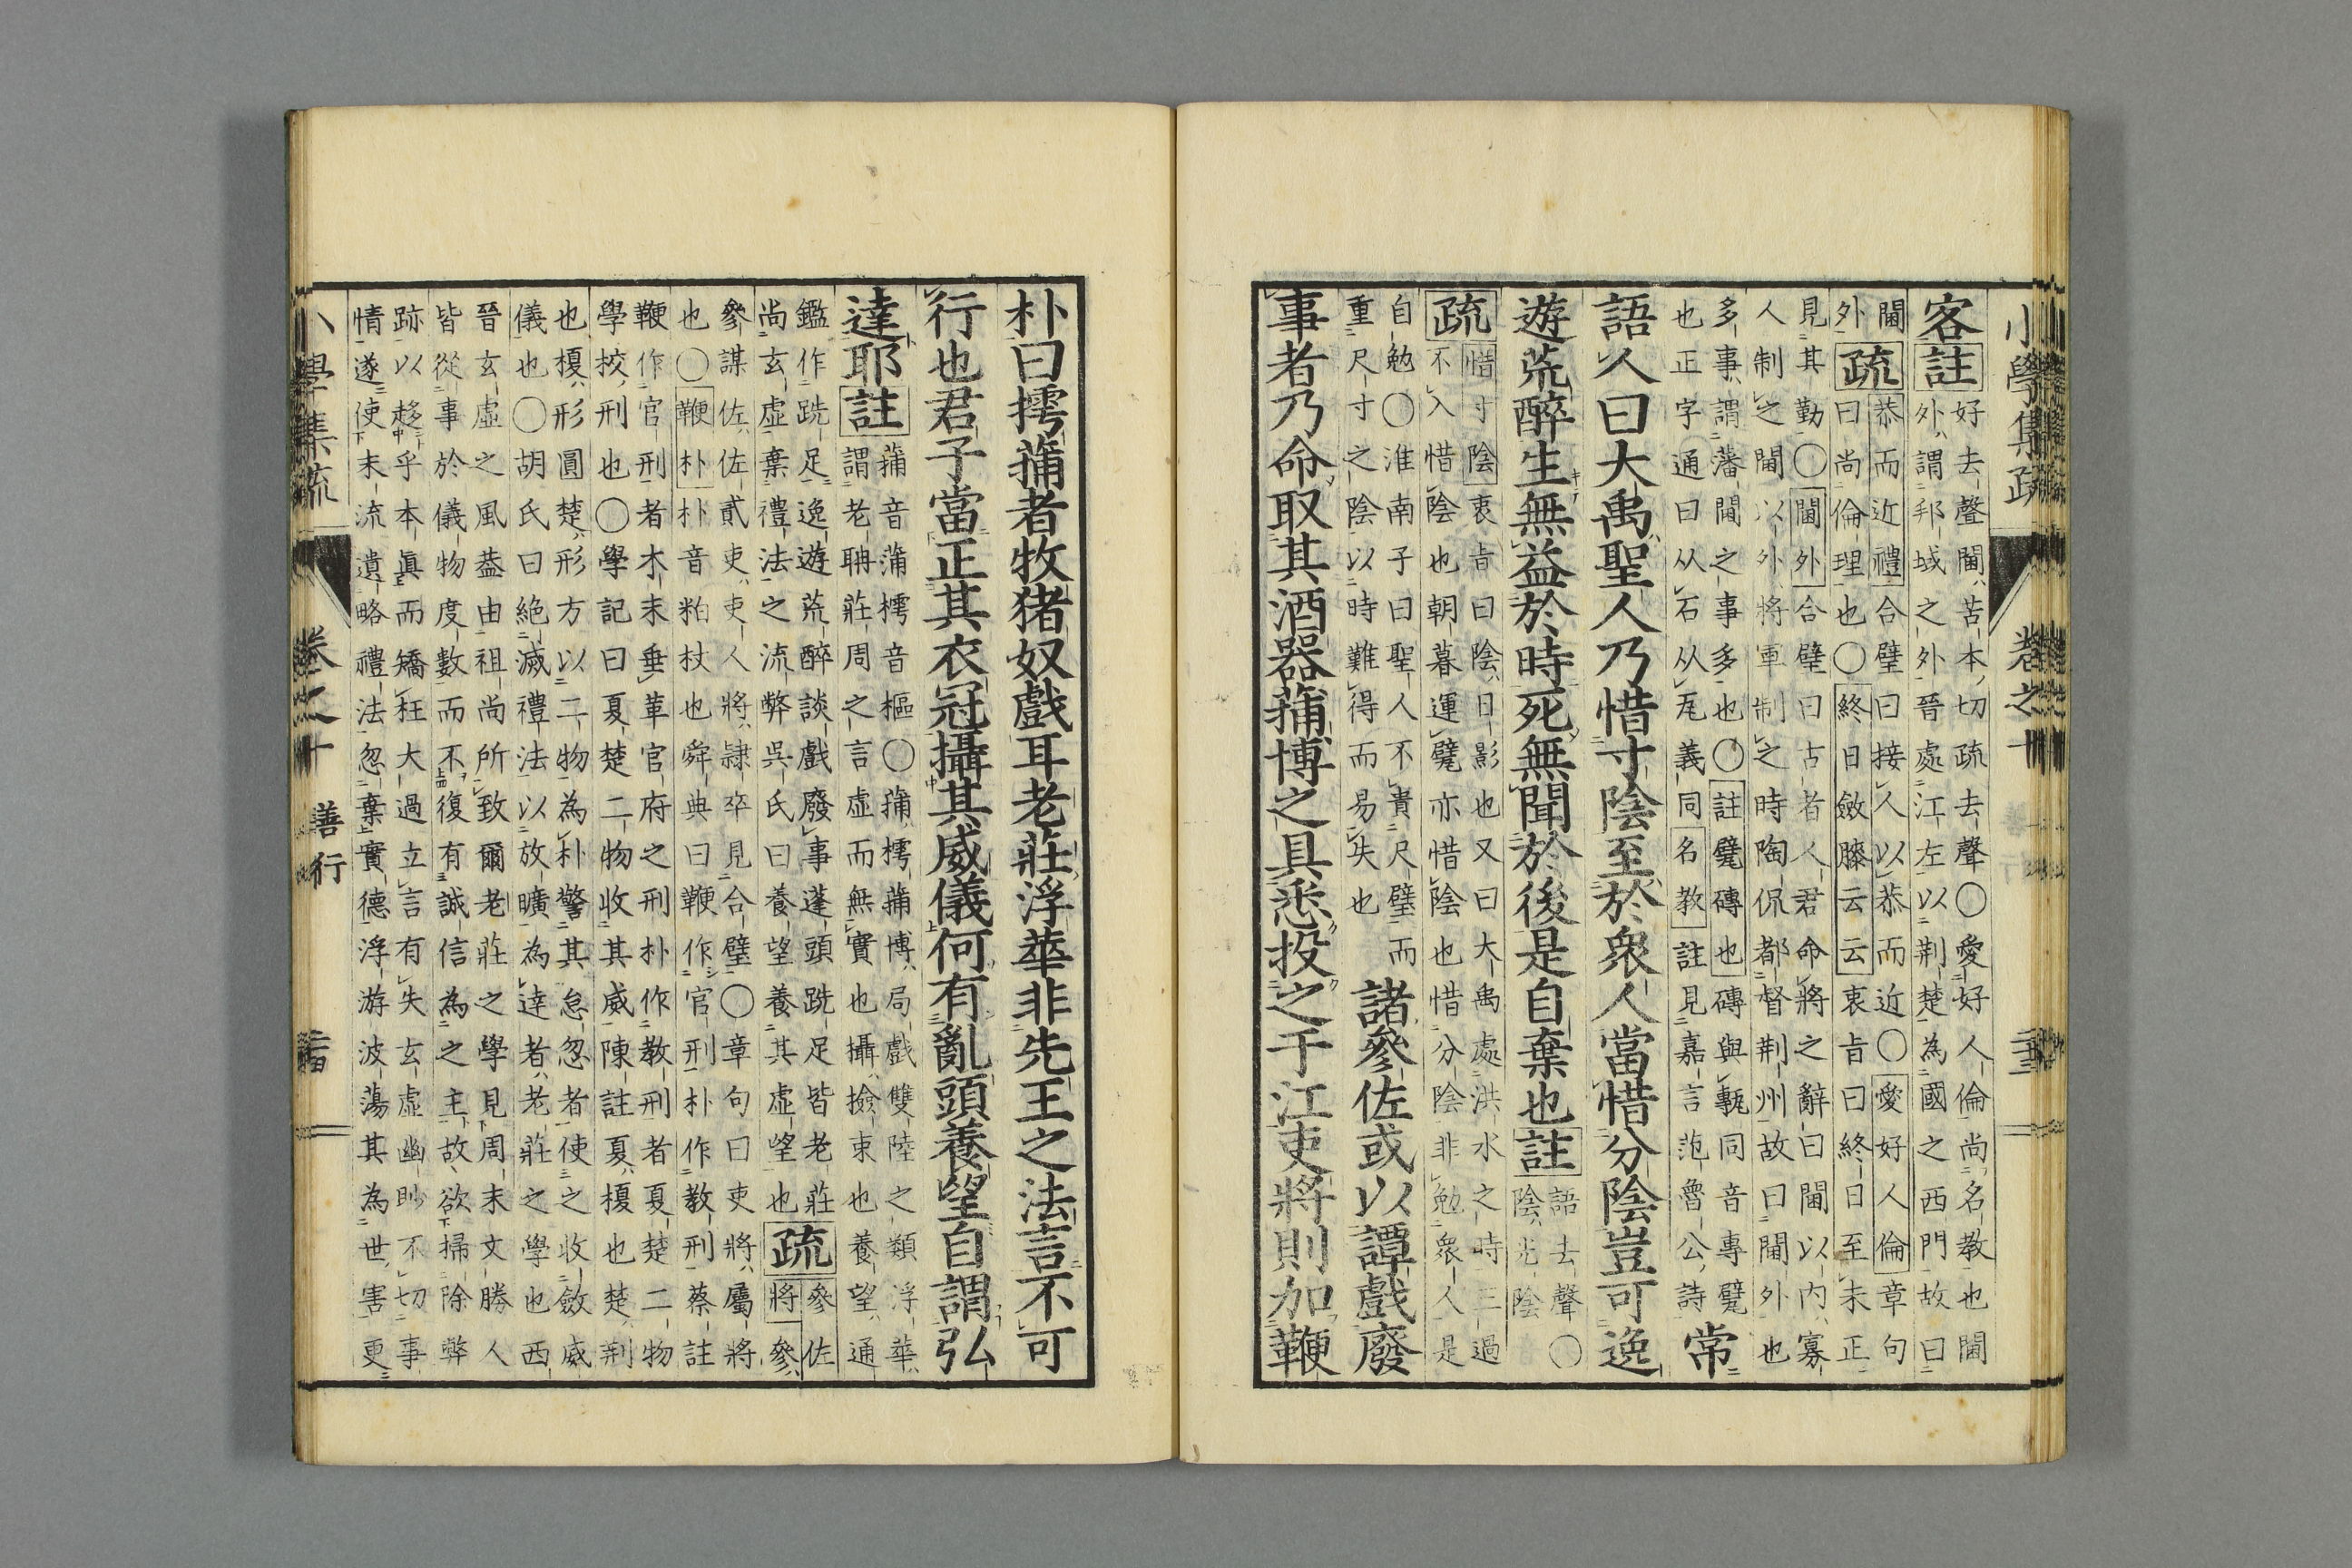 小學集疏 卷之十 二十三
客註好去聲閫苦本切疏去聲○愛好人倫尚名教也閫
外謂邦域之外晉處江左以荆楚為國之西門故曰
閫外疏恭而近禮合璧曰接人以恭而近○愛好人倫章句
曰尚倫理也○終日斂膝云云衷旨曰終日至未正
見其勤○閫外合璧曰古者人君命將之辭曰閫以內寡
人制之閫以外將軍制之時陶侃都督荆州故曰閫外也
多事謂藩閫之事多也○註甓磚也磚與甎同音專甓
也正字通曰从石从瓦義同名教註見嘉言范魯公詩常
語人曰大禹聖人乃惜寸陰至於衆人當惜分陰豈可逸
遊荒醉生無益於時死無聞於後是自棄也註語去聲○
陰光陰
疏惜寸陰衷旨曰陰日影也又曰大禹處洪水之時三過
不入惜陰也朝暮運甓亦惜陰也惜分陰非勉衆人是
自勉○淮南子曰聖人不貴尺璧而
重尺寸之陰以時難得而易失也諸參佐或以譚戲廢
事者乃命取其酒器蒱博之具悉投之于江吏將則加鞭
朴曰摴蒱者牧猪奴戲耳老莊浮華非先王之法言不可
行也君子當正其衣冠攝其威儀何有亂頭養望自謂弘
達耶註蒱音蒲摴音樞○蒱摴蒱博局戲雙陸之類浮華
謂老聃莊周之言虛而無實也攝撿束也養望通
鑑作跣足逸遊荒醉談戲廢事蓬頭跣足皆老莊
尚玄虛棄禮法之流弊吳氏曰養望養其虛望也疏參佐
將參
參謀佐佐貳吏吏人將隷卒見合璧○章句曰吏將屬將
也○鞭朴朴音粕杖也舜典曰鞭作官刑朴作教刑蔡註
鞭作官刑者木末垂革官府之刑朴作教刑者夏楚二物
學挍刑也○學記曰夏楚二物收其威陳註夏榎也楚荆
也榎形圓楚形方以二物為朴警其怠忽者使之收斂威
儀也○胡氏曰絶滅禮法以放曠為達者老莊之學也西
晉玄虛之風葢由祖尚所致爾老莊之學見周末文勝人
皆從事於儀物度數而不復有誠信為之主故欲掃除弊
跡以趍乎本眞而矯枉大過立言有失玄虛幽眇不切事
情遂使末流遺略禮法忽棄實德浮游波蕩其為世害更
小學集疏 卷之十 善行 二十四